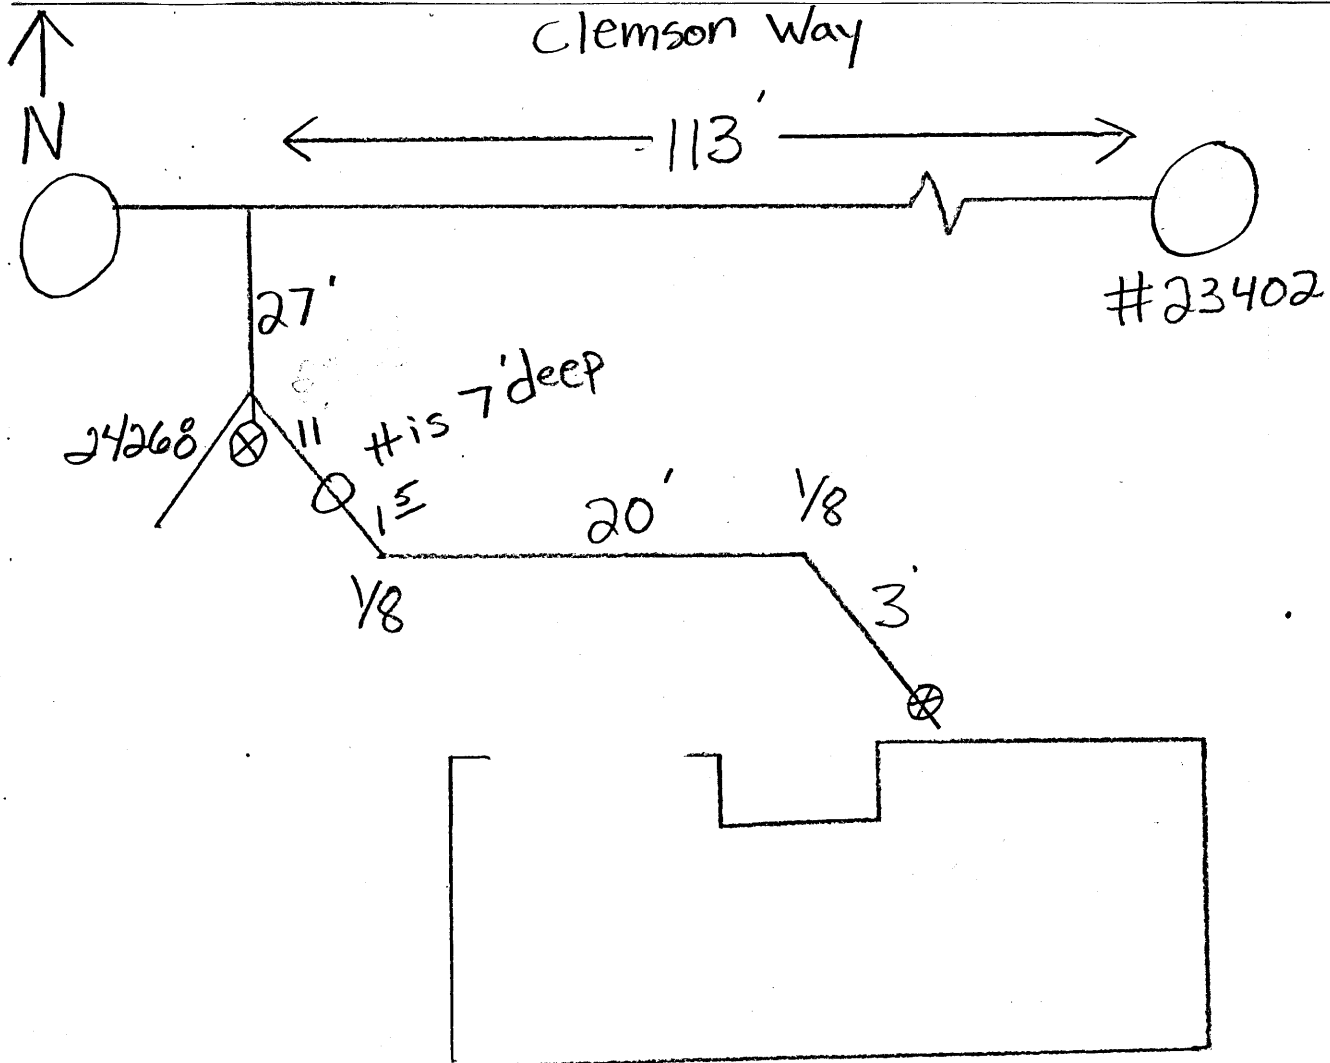 Clemson Way
N
113'
#23402
27'
24268
11
# is 7' deep
1 5
20'
1/8
1/8
3'